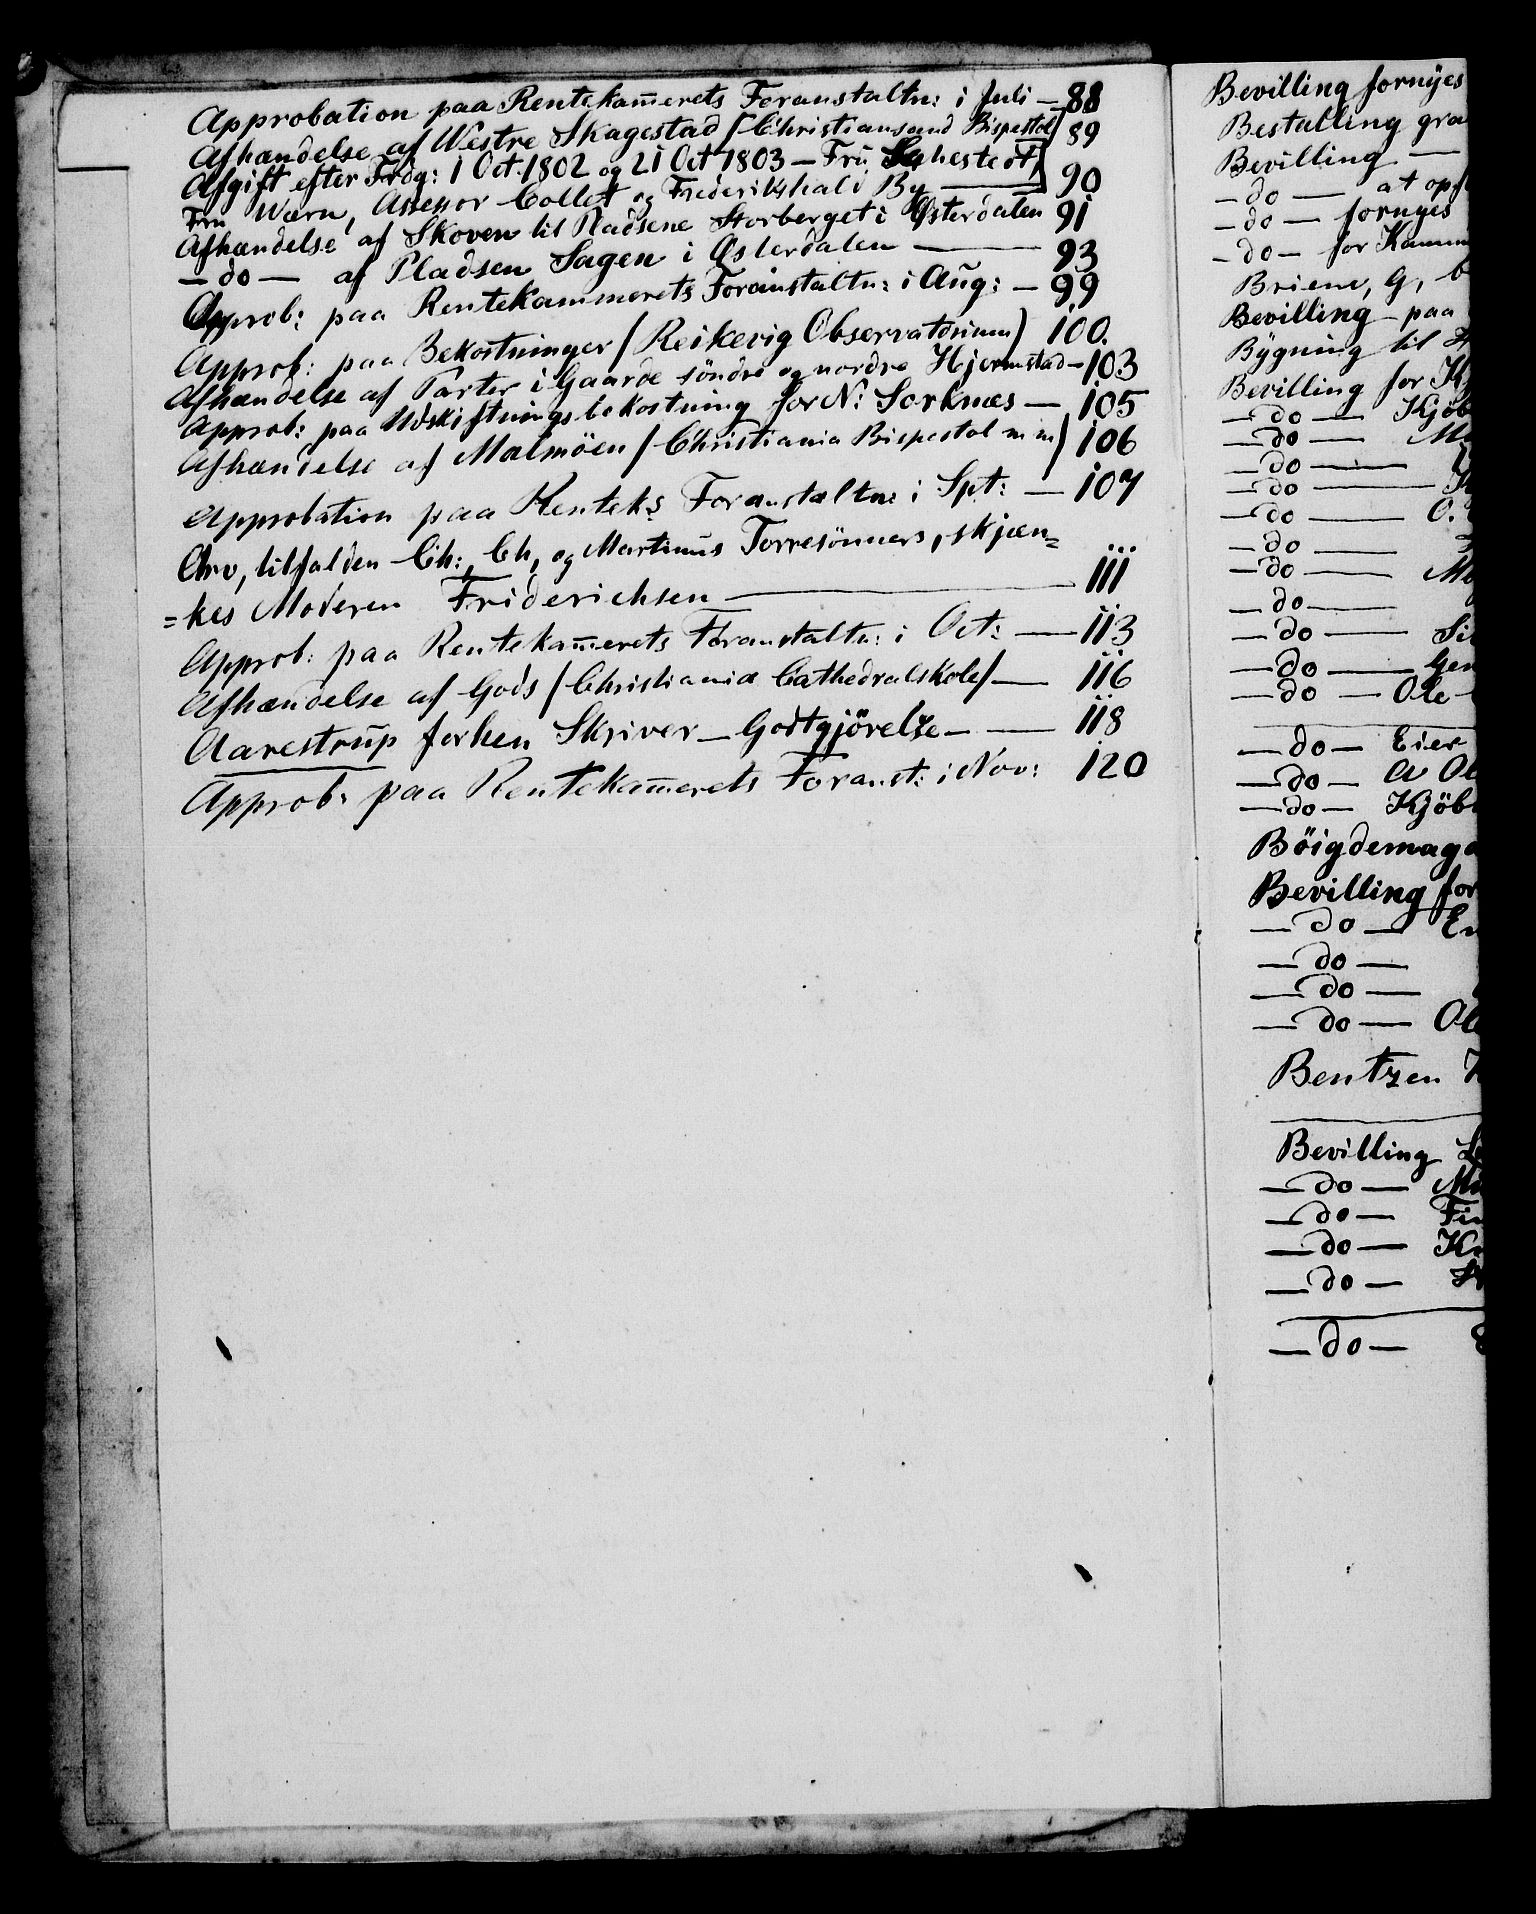 Approbation paa Rentekam̅erets Foranstaltn: i Juli — 88
Afhændelse af Westre Skagestad /Christiansand Bispestol/ 89
Afgift efter Frdg: 1 Oct. 1802 og 21 Oct 1803 — Fru Sehestedt,
Fru Wærn, Assessor Collet og Frederikshald By — 90
Afhændelse af Skoven til Pladsene Storberget i Østerdalen 91
— do — af Pladsen Sagen i Østerdalen — 93
Approb: paa Rentekammerets Foranstaltn: i Aug: — 99
Approb: paa Bekostninger /Reikevig Observatorium) 100.
Afhændelse af Parter i Gaarde söndre og nordre Hjermstad — 103
Approb: paa Udskiftningsbekostning for N: Sorknæs — 105
Afhændelse af Malmöen /Christiania Bispestol m m/ 106
Approbation paa Renteks Foranstaltn: i Spt: — 107
Arv, tilfalden Ch:, Ch, og Martinus Torresönners, skjæn=
=kes Moderen Friderichsen — 111
Approb: paa Rentekam̅erets Foranstaltn: i Oct: — 113
Afhændelse af Gods /Christiania Cathedralskole/ — 116
Aarestrup forhen Skriver — Godtgjörelse — 118
Approb: paa Rentekam̅erets Foranst: i Nov: 120
Bevilling fornyes
Bestalling gra
Bevilling —
— do — at opf
— do — fornyes
— do — for Kamm
Briem, G, b
Bevilling — paa
Bygning til
Bevilling for K
— do — Kjöb
— do — M
— do —
— do — K
— do — O.
— do —
— do — Mo
— do —
— do — Si
— do — Gen
— do — Ole
— do — Eier
— do — A Ol
— do — Kjöb
Böigdemaga
Bevilling for
— do — En
— do —
— do —
— do — Ol
Bentzen
Bevilling
— do — Ma
— do — Fin
— do — Kn
— do —
— do —